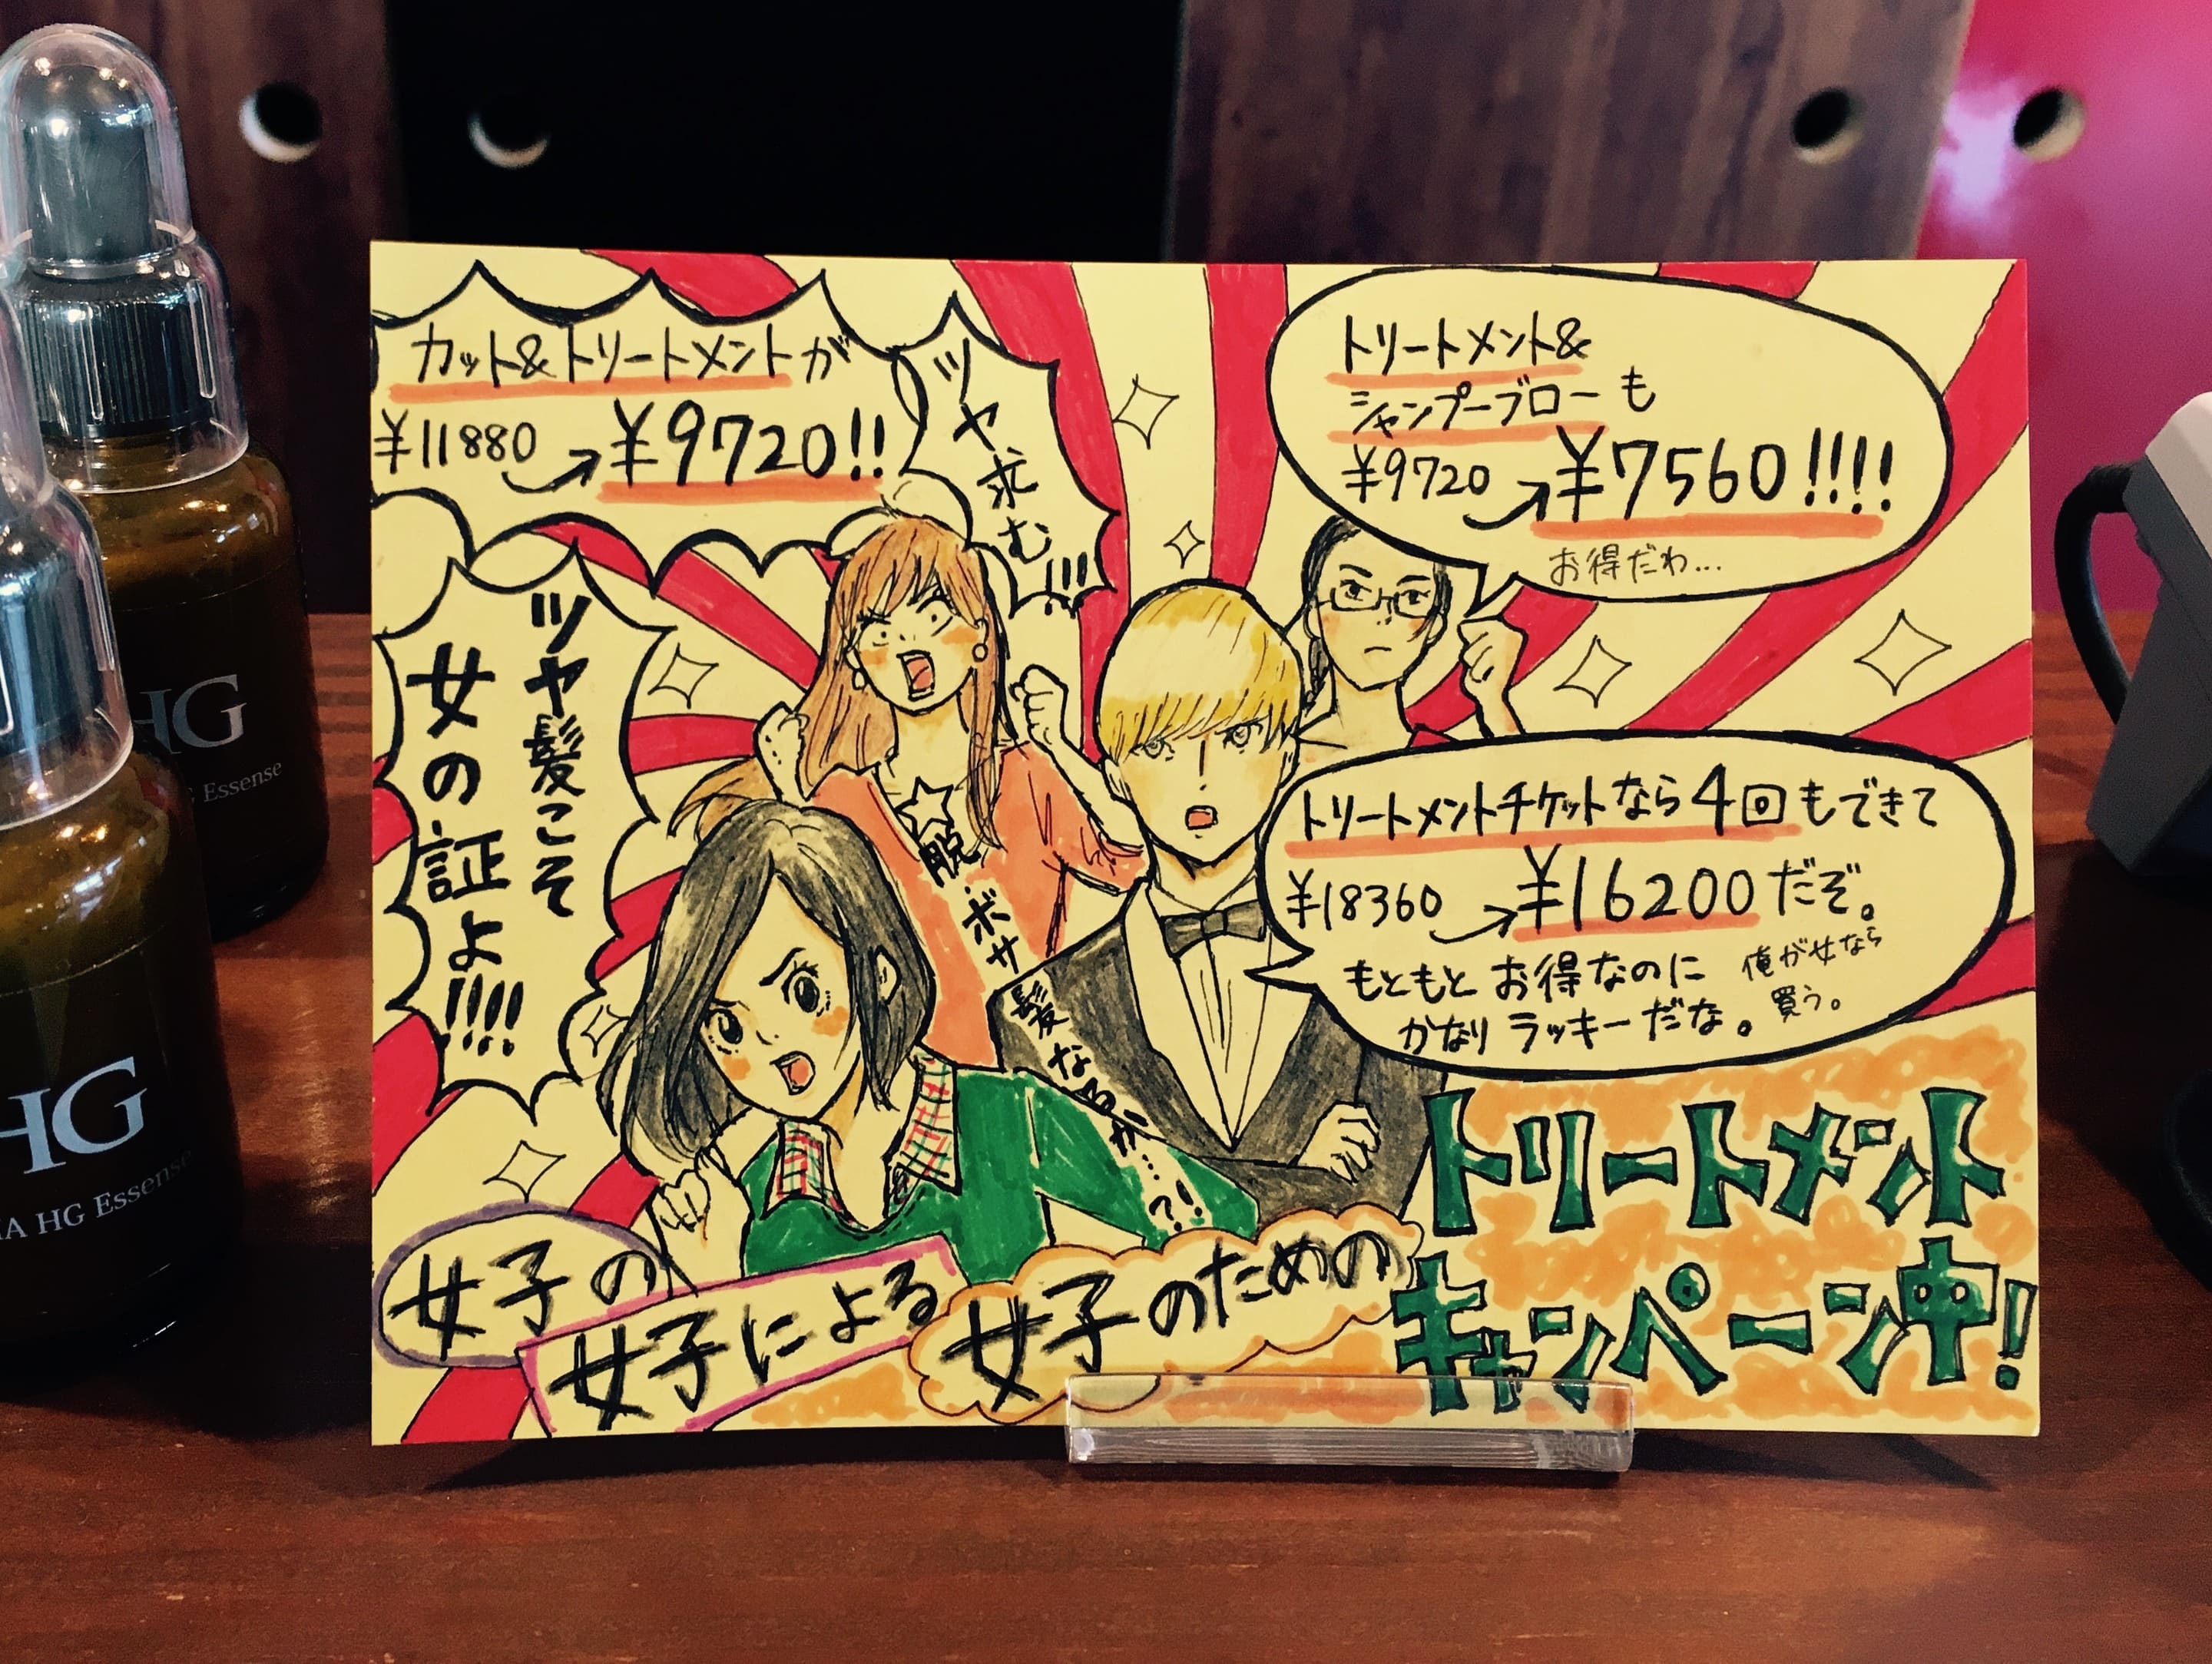 カット&トリートメントが
¥11880→¥9720!!
ツヤ求む!!!
トリートメント&
シャンプーブローも
¥9720→¥7560!!!!
お得だわ…
ツヤ髪こそ
女の証よ!!!!
トリートメントチケットなら4回もできて
¥18360→¥16200だぞ。
もともとお得なのに
かなりラッキーだな。
俺が女なら
買う。
☆脱・ボサ
髪な
女子の
女子による
女子のための
トリートメント
キャンペーン中!
HG
Essense
HG
HG Essense